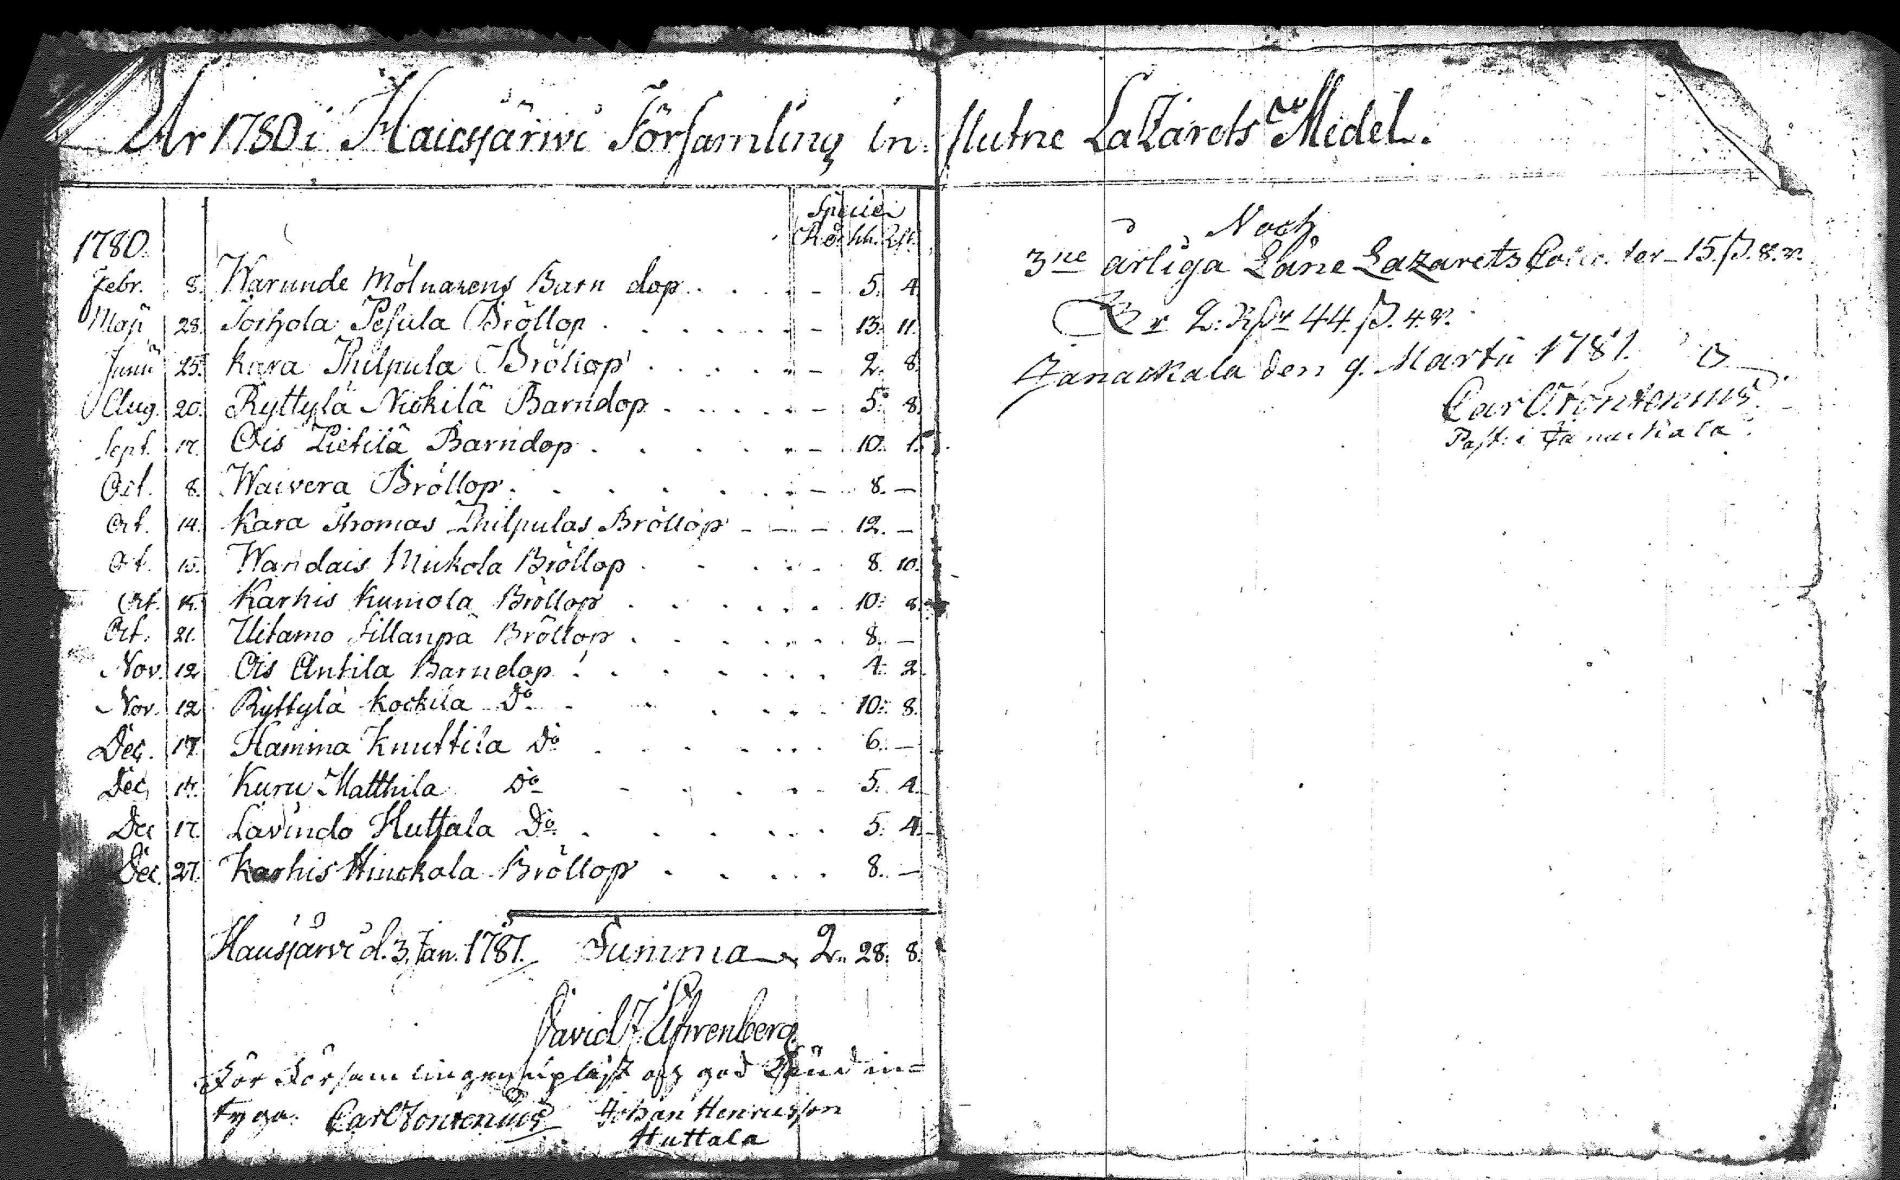 År 1780 i Hausjärwi Församling in flutne Lazarets Medel.
Specie
1780. Rd. ß. rst.
Febr. 8. Warunde Mölnarens Barn dop. . . . - 5. 4.
Maji 28. Torhola Pesula Bröllop . . . . . - 13. 11.
Junii 25. Kara Philpula Bröllop . . . . - 2. 8.
Aug. 20. Ryttylä Nickilä Barndop . . . . . - 5. 8.
Sept. 17. Ois Lietilä Barndop . . . . . - 10. 1.
Oct. 8. Waivera Bröllop . . . . . . - 8. —
Oct. 14. Kara Thomas Philpulas Bröllop - — - 12. —
Oct. 15. Wandais Mickola Bröllop . . . . 8. 10.
Oct. 15. Karhis Kumola Bröllop . . . . . . 10. 8.
Oct. 21. Uitamo Sillanpä Bröllop . . . . . . 8. —
Nov. 12. Ois Antila Barndop . . . . . . . 4. 2.
Nov. 12. Ryttylä Kockila Do . . . . . . 10. 8.
Dec. 17. Hamina Knuttila Do . . . . . . 6. —
Dec. 17. Kuru Matthila Do . . . . . 5. 4.
Dec 17. Lavindo Huttala Do . . . . . . 5. 4.
Dec. 27. Karhis Hinckala Bröllop . . . . . 8. —
Hausjärvi d. 3. Jan. 1781. Summa 2. 28. 8.
David J.
För Församlingens och god in=
tyga. Carl Fontenius Johan Henricsson
Huttala
Noch
3ne årliga Låne Lazarets ter - 15. ß. 8. r.
Är 2: Rdr 44. ß. 4. r.
Janackala den 9. Martii 1781.
Carl Fontenius
Past: i Janackala.